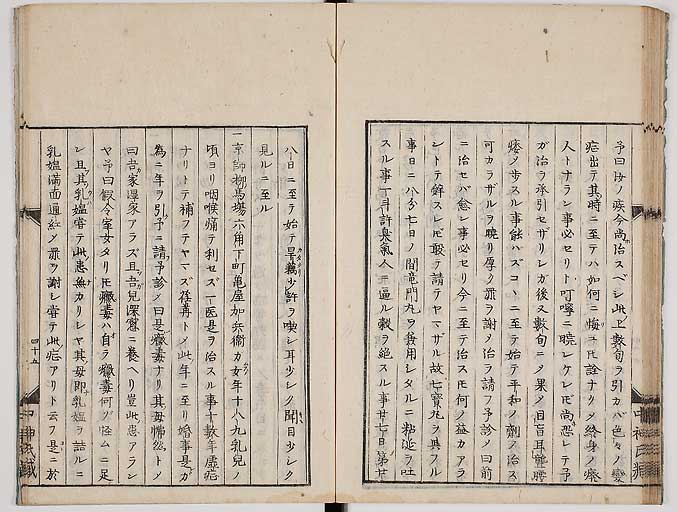 予曰汝ノ疾今尚治スベシ此上數旬ヲ引カバ色々ノ變
症出テ其時ニ至テハ如何ニ悔ユ𪜈詮ナク終身ノ癈
人トナラン事必セリト叮嚀ニ曉レケレ𪜈尚恐レテ予
ガ治ヲ承引セザリシガ後又數旬ニノ果ノ目盲耳聾腰
痿ノ歩スル事能ハズコヽニ至テ始テ平和ノ劑ノ治ス
可カラザルヲ曉リ厚ク罪ヲ謝ノ治ヲ請フ予診ノ曰前
ニ治セバ愈シ事必セリ今ニ至テ治ス𪜈何ノ益カアラ
ントテ辭スレ𪜈敢テ請テヤマザル故七寳丸ヲ與フル
事日ニ八分七日ノ間竜門丸ヲ兼用シタルニ粘涎ヲ吐
スル事一月許臭氣人ニ逼ル穀ヲ絶スル事廿七日第廿
八日ニ至テ始テ葛藕少許ヲ喫シ耳少シク聞目少シク
見ルニ至ル
一京師柳馬場六角下町亀屋如兵衞カ女年十八九乳兒ノ
頃ヨリ咽喉痛テ利セズ一醫是ヲ治スル事十數年虚症
ナリトテ補フテヤマズ荏苒トノ此年ニ至リ婚事是ガ
為ニ年ヲ引予ニ請予診ノ曰是黴毒ナリ其母怫然トノ
曰吾家淫家アラズ且吾兒深窻ニ養ヘリ豈此患アラン
ヤ予曰假令室女タリ𪜈黴毒ハ自ラ黴毒何ノ怪ムニ足
ン且其乳媼嘗テ此患無カリシヤ其母即乳媼ヲ詰ルニ
乳媼滿面通紅ノ罪ヲ謝シ嘗テ此症アリト云フ是ニ於
四十五
中神氏藏